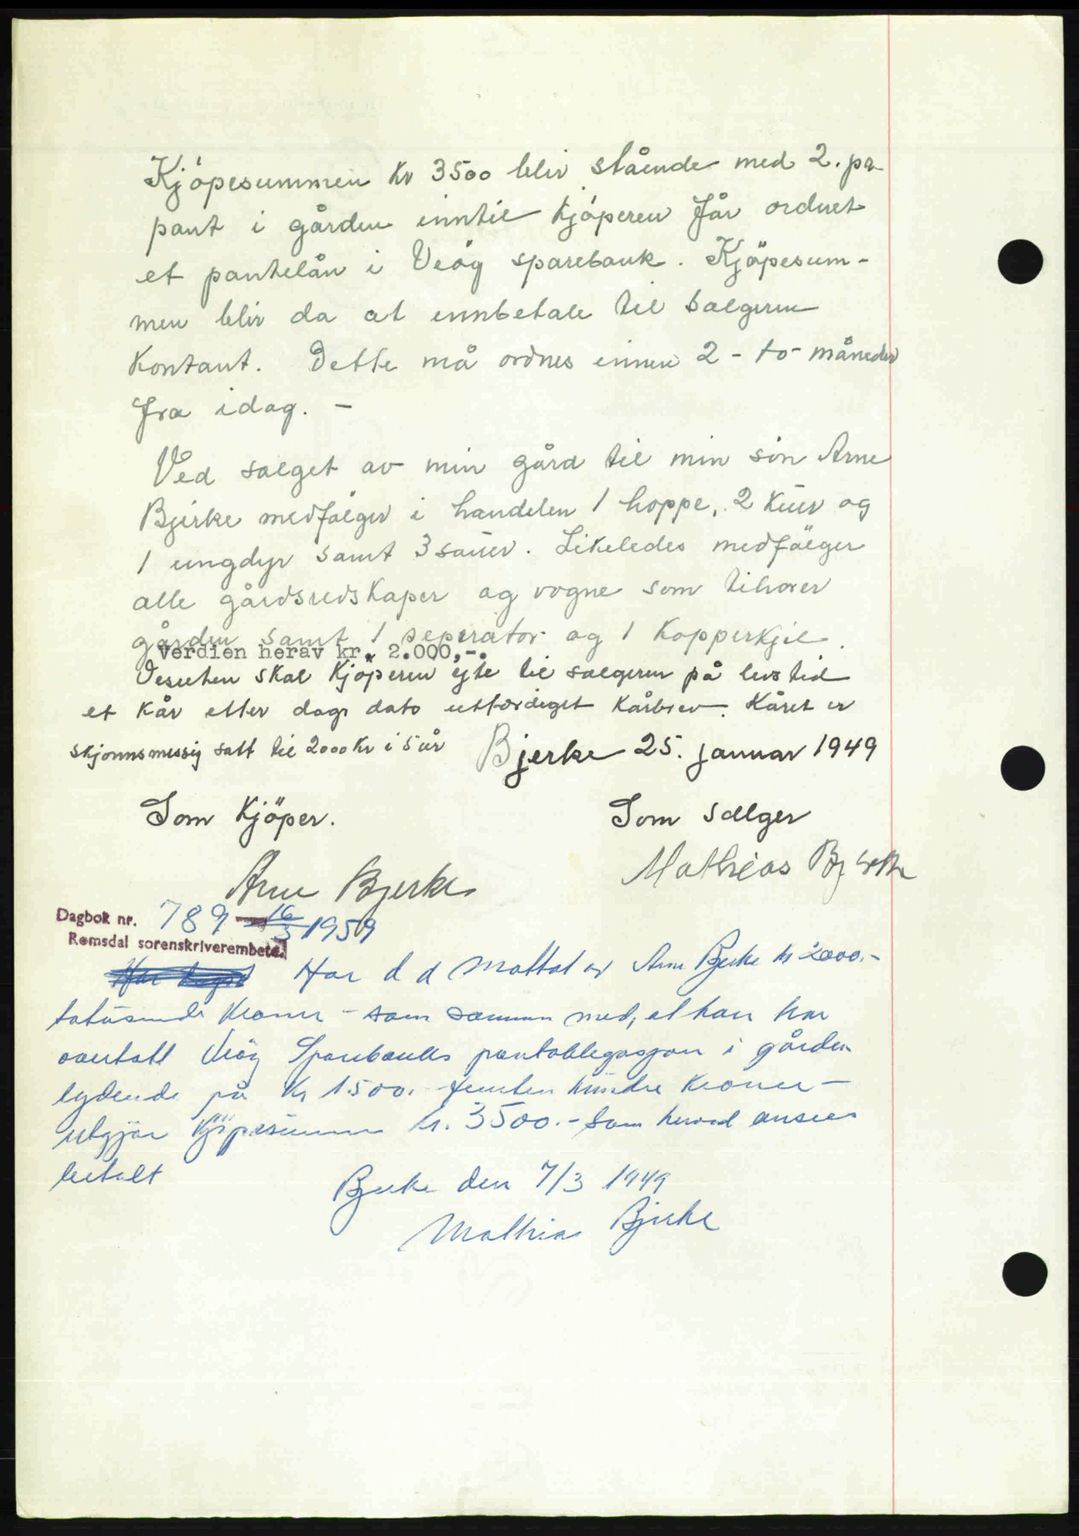 Kjöpesummen kr 3500 blir stående med 2. pr.
pant i gården inntil kjöperen får ordnet
et pantelån i Veöy sparebank. Kjöpesum-
men blir da at innbetale til sælgeren
kontant. Dette må ordnes innen 2 - to - måneder
fra idag. -
Ved salget av min gård til min sön Arne
Bjerke medfölger i handelen 1 hoppe, 2 kuer og
1 ungdyr samt 3 sauer. Likeledes medfölger
alle gårdsredskaper og vogne som tilhörer
gården samt 1 seperator og 1 kopperkjel.
Verdien herav kr. 2.000,-.
Desuten skal kjöperen yte til sælgeren på livstid
et kår etter dags dato utferdiget kårbrev. Kåret er
skjönnsmessig satt til 2000 kr i 5 år
Bjerke 25. januar 1949
Som Kjöper.
Som sælger
Arne Bjerke
Mathias Bjerke
Dagbok nr. 789 - 16/3 1959
Romsdal sorenskriverembete
Har d d mottat av Arne Bjerke kr 2000.-
totusende kroner - som sammen med, at han har
overtatt Veöy Sparebanks pantobligasjon i gården
lydende på kr 1500. femten hundre kroner -
utgjör kjöpesummen kr. 3500.- som herved ansees
betalt
Bjerke den 7/3 1949
Mathias Bjerke